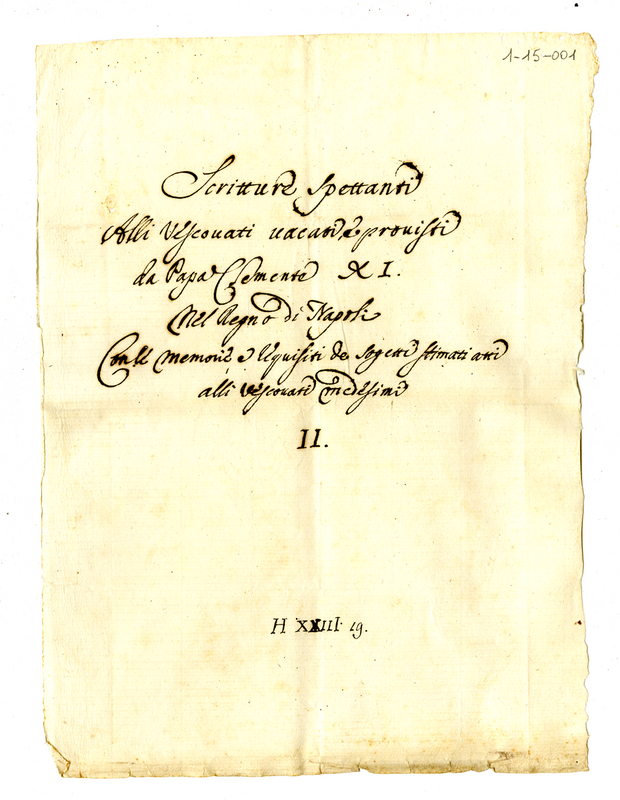 1-15-001
Scritture spettanti
Alli Vescovati vacati, e provisti
da Papa Clemente XI.
Nel Regno di Napoli
Con le memorie e requisiti de sogetti stimati atti
alli vescovati medesimi
II.
H XXIII. 19.